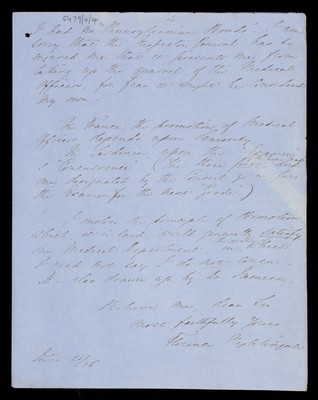 5479/6/4
I had no Pennsylvanian Bonds". I am
sorry that the Inspector General has so
injured me that it prevents me from
taking up the quarrel of the Medical
Officers for fear it might be considered
my own.
In France, the promotion of Medical
Officers depends upon Seniority
In Sardinia upon the
"Concurrence" (The three
are designated by the Council
the reason for the word
I enclose the principle of Promotion
which it is said will generally satisfy
our Medical Department.
I need not say I do not concur.
It is also drawn up by Dr Jameson.
Believe me dear Sir
most faithfully yours
Florence Nightingale